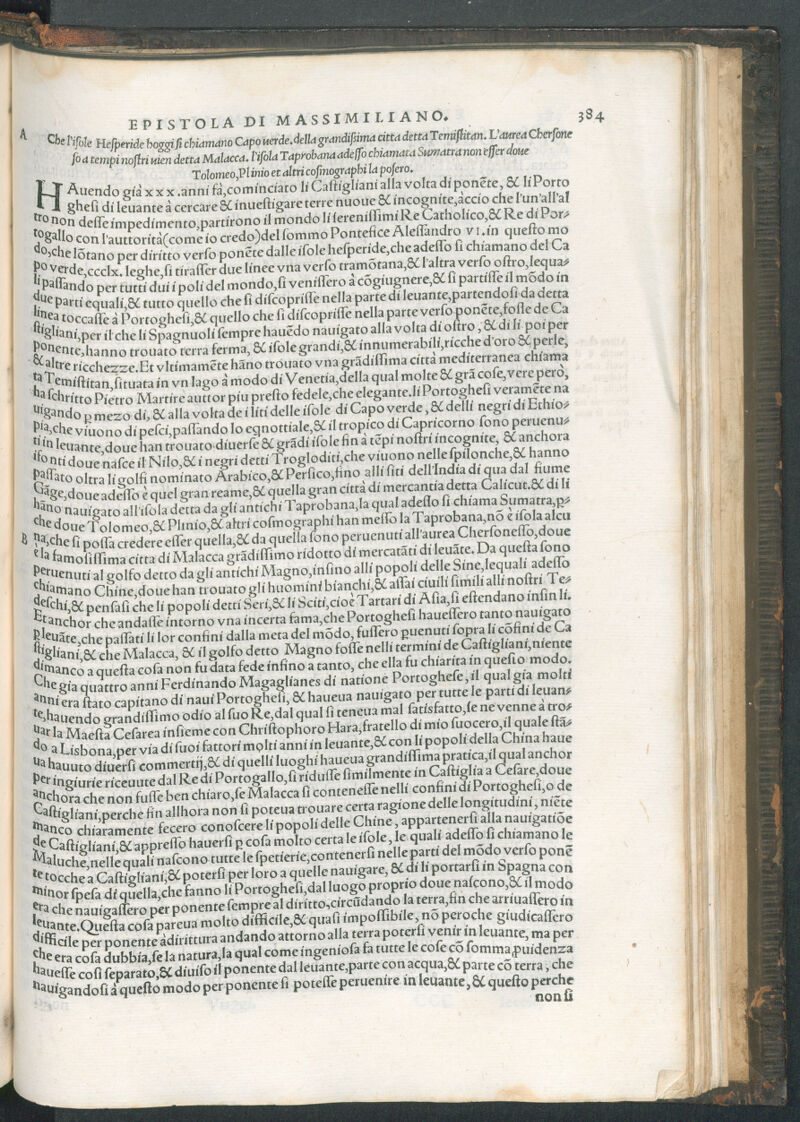 EPISTOLA DI MASSIMILIANO. 384
A Che l'isole Hesperide hoggi si chiamano Capo uerde. della grandißima citta detta Temistitan. L'aurea Chersone
so a tempi nostri uien detta Malacca. l'isola Taprobana adesso chiamata Sumatra non esser doue
Tolomeo, Plinio et altri cosmographi la posero.
HAuendo già x x x .anni fà, cominciato li Castigliani alla volta di ponẽte, & li Porto
ghesi di leuante à cercare & inuestigare terre nuoue & incognite, accio che l'un'all'al
tro non desse impedimento, partirono il mondo li serenissimi Re Catholico, & Re di Por⸗
togallo con l'auttorità (come io credo) del sommo Pontefice Alessandro VI. in questo mo
do, che lõtano per diritto verso ponẽte dalle isole hesperide, che adesso si chiamano del Ca
po verde, ccclx. leghe, si tirasser due linee vna verso tramõtana, & l'altra verso ostro, lequa⸗
li passando per tutti dui i poli del mondo, si venissero à cõgiugnere, & si partisse il mõdo in
due parti equali, & tutto quello che si discoprisse nella parte di leuante, partendosi da detta
linea toccasse à Portoghesi, & quello che si discoprisse nella parte verso ponẽte, fosse de Ca
stigliani, per il che li Spagnuoli sempre hauẽdo nauigato alla volta di ostro, & di li poi per
ponente, hanno trouato terra ferma, & isole grandi, & innumerabili, ricche d'oro & perle,
& altre ricchezze. Et vltimamẽte hãno trouato vna grãdissima città mediterranea chiama
ta Temistitan, situata in vn lago à modo di Venetia, della qual molte & grã cose, vere però,
ha schritto Pietro Martire auttor piu presto fedele, che elegante. li Portoghesi veramẽte na
uigando p mezo di, & alla volta de i liti delle isole di Capo verde, & delli negri di Ethio⸗
pia, che viuono di pesci, passando lo egnottiale, & il tropico di Capricorno sono peruenu⸗
ti in leuante, doue han trouato diuerse & grãdi isole fin à tẽpi nostri incognite, & anchora
i fonti doue nasce il Nilo, & i negri detti Trogloditi, che viuono nelle spilonche, & hanno
passato oltra li golfi nominato Arabico, & Persico, fino alli siti dell'India di qua dal fiume
Gãge, doue adesso è quel gran reame, & quella gran città di mercantia detta Calicut. & di li
hãno nauigato all'isola detta da gli antichi Taprobana, la qual adesso si chiama Sumatra, p⸗
che doue Tolomeo, & Plinio, & altri cosmographi han messo la Taprobana, nõ è isola alcu
B na, che si possa credere esser quella, & da quella sono peruenuti all'aurea Chersonesso, doue
è la famosissima citta di Malacca grãdissimo ridotto di mercatãti di leuãte. Da questa sono
peruenuti al golfo detto da gli antichi Magno, insino alli popoli delle Sine, lequali adesso
chiamano Chine, doue han trouato gli huomini bianchi, & assai ciuili simili alli nostri Te⸗
deschi, & pensasi che li popoli detti Seri, & li Sciti, cioè Tartari di Asia, si estendano insin li.
Et anchor che andasse intorno vna incerta fama, che Portoghesi hauessero tanto nauigato
p leuãte, che passati li lor confini dalla meta del mõdo, fussero puenuti sopra li cõfini de Ca
stigliani, & che Malacca, & il golfo detto Magno fosse nelli termini de Castigliani, niente
dimanco a questa cosa non fu data fede infino a tanto, che ella fu chiarita in questo modo.
Che già quattro anni Ferdinando Magaglianes di natione Portoghese, il qual gia molti
anni era stato capitano di naui Portoghesi, & haueua nauigato per tutte le parti di leuan⸗
te, hauendo grandissimo odio al suo Re, dal qual si teneua mal satisfatto, se ne venne à tro⸗
uar la Maestà Cesarea insieme con Christophoro Hara, fratello di mio suocero, il quale stã⸗
do a Lisbona, per via di suoi fattori molti anni in leuante, & con li popoli della China haue
ua hauuto diuersi commertij, & di quelli luoghi haueua grandissima pratica, il qual anchor
per ingiurie riceuute dal Re di Portogallo, si ridusse similmente in Castiglia a Cesare, doue
anchora che non fusse ben chiaro, se Malacca si contenesse nelli confini di Portoghesi, o de
Castigliani, perche fin allhora non si poteua trouare certa ragione delle longitudini, niẽte
manco chiaramente fecero conoscere li popoli delle Chine, appartenersi alla nauigatiõe
de Castigliani, & appresso hauersi p cosa molto certa le isole, le quali adesso si chiamano le
Maluche, nelle quali nascono tutte le spetierie, contenersi nelle parti del mõdo verso ponẽ
te tocche a Castigliani, & potersi per loro a quelle nauigare, & di li portarsi in Spagna con
minor spesa di quella, che fanno li Portoghesi, dal luogo proprio doue nascono, & il modo
era che nauigassero per ponente sempre al diritto, circũdando la terra, fin che arriuassero in
leuante. Questa cosa pareua molto difficile, & quasi impossibile, nõ peroche giudicassero
difficile per ponente àdirittura andando attorno alla terra potersi venir in leuante, ma per
che era cosa dubbia, se la natura, la qual come ingeniosa fa tutte le cose cõ somma, puidenza
hauesse cosi separato, & diuiso il ponente dal leuante, parte con acqua, & parte cõ terra, che
nauigandosi à questo modo per ponente si potesse peruenire in leuante, & questo perche
non si